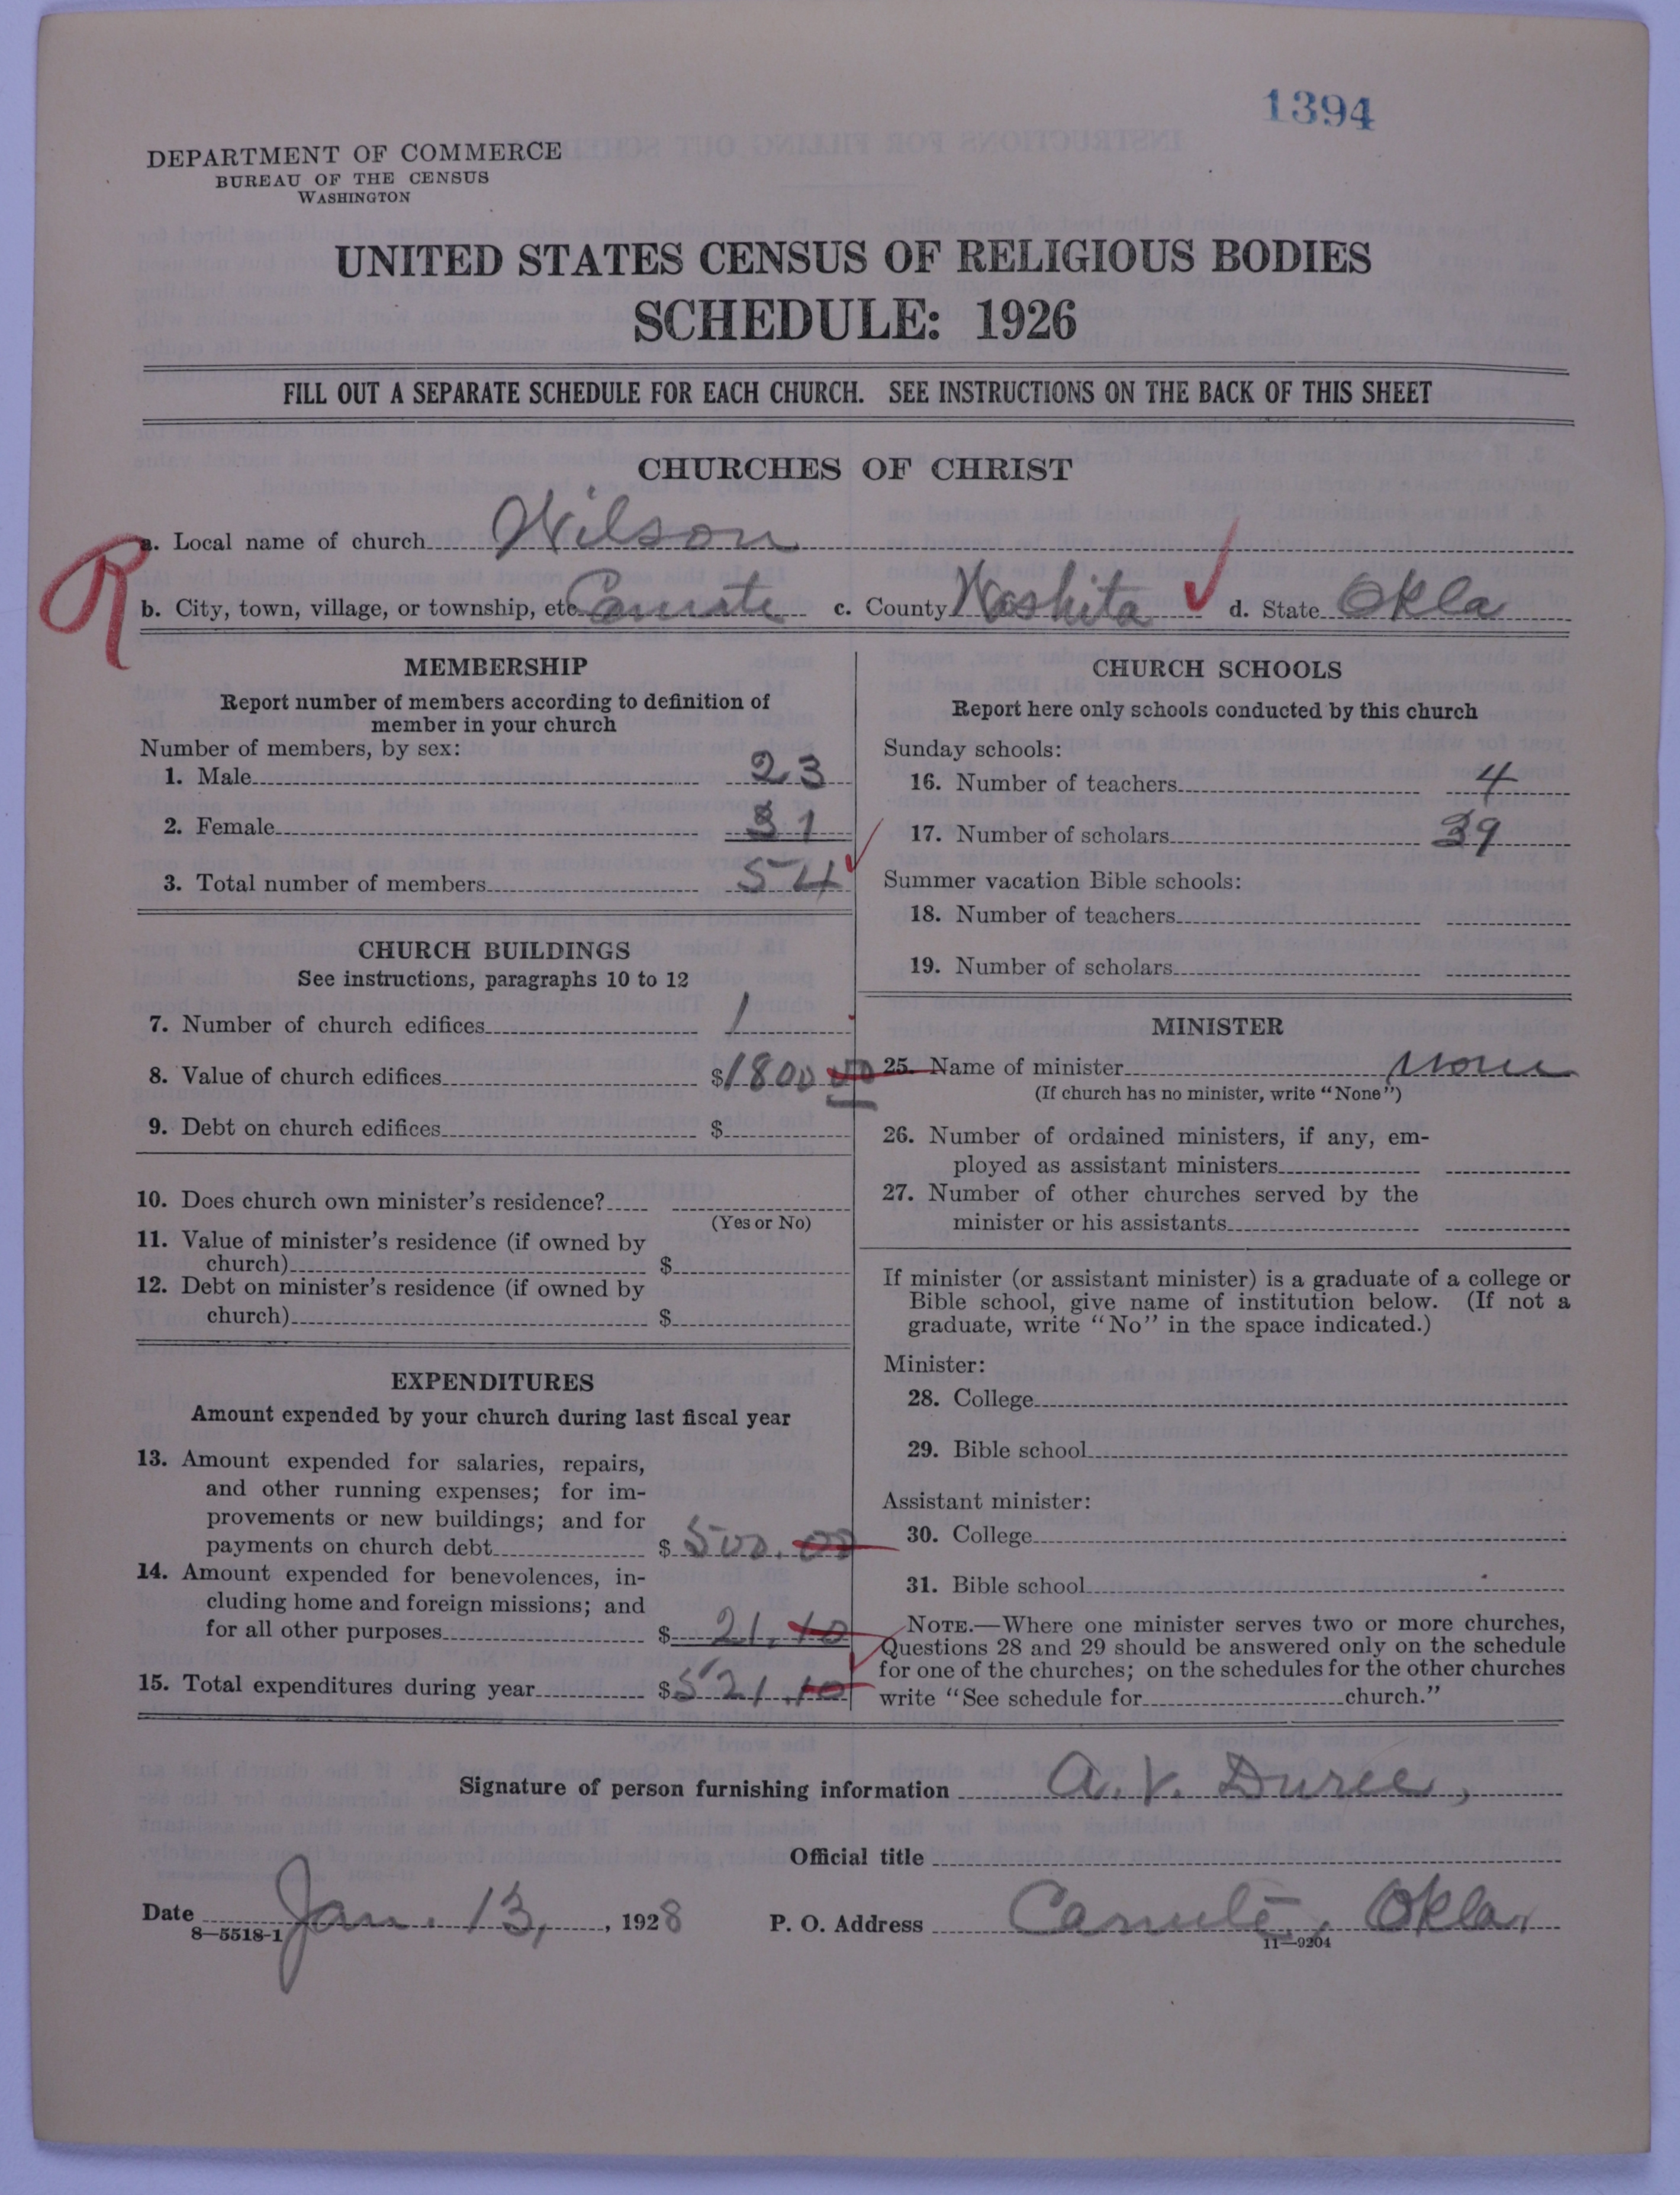 1394
DEPARTMENT OF COMMERCE
BUREAU OF THE CENSUS
WASHINGTON
UNITED STATES CENSUS OF RELIGIOUS BODIES
SCHEDULE: 1926
FILL OUT A SEPARATE SCHEDULE FOR EACH CHURCH. SEE INSTRUCTIONS ON THE BACK OF THIS SHEET
CHURCHES OF CHRIST
R
a. Local name of church Wilson
b. City, town, village, or township, etc. Canute c. County Washita d. State Okla
MEMBERSHIP
Report number of members according to definition of
member in your church
Number of members, by sex:
1. Male 23
2. Female 31
3. Total number of members 54
CHURCH BUILDINGS
See instructions, paragraphs 10 to 12
7. Number of church edifices 1
8. Value of church edifices $1800 00
9. Debt on church edifices $
10. Does church own minister's residence?
(Yes or No)
11. Value of minister's residence (if owned by
church) $
12. Debt on minister's residence (if owned by
church) $
EXPENDITURES
Amount expended by your church during last fiscal year
13. Amount expended for salaries, repairs,
and other running expenses; for im-
provements or new buildings; and for
payments on church debt $ 500.00
14. Amount expended for benevolences, in-
cluding home and foreign missions; and
for all other purposes $ 21.10
15. Total expenditures during year $521.10
CHURCH SCHOOLS
Report here only schools conducted by this church
Sunday schools:
16. Number of teachers 4
17. Number of scholars 39
Summer vacation Bible schools:
18. Number of teachers
19. Number of scholars
MINISTER
25. Name of minister None
(If church has no minister, write "None")
26. Number of ordained ministers, if any, em-
ployed as assistant ministers
27. Number of other churches served by the
minister or his assistants
If minister (or assistant minister) is a graduate of a college or
Bible school, give name of institution below. (If not a
graduate, write "No" in the space indicated.)
Minister:
28. College
29. Bible school
Assistant minister:
30. College
31. Bible school
NOTE.—Where one minister serves two or more churches,
Questions 28 and 29 should be answered only on the schedule
for one of the churches; on the schedules for the other churches
write "See schedule for church."
Signature of person furnishing information A. V. Duree,
Official title
Date Jan. 13, 1928 P. O. Address Canute, Okla,
8—5518-1 11—9204